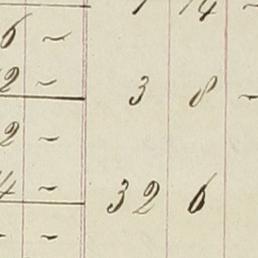 14 ~
6 ~
2 ~ 3 8 ~
2 ~
4 ~ 32 6
~ ~